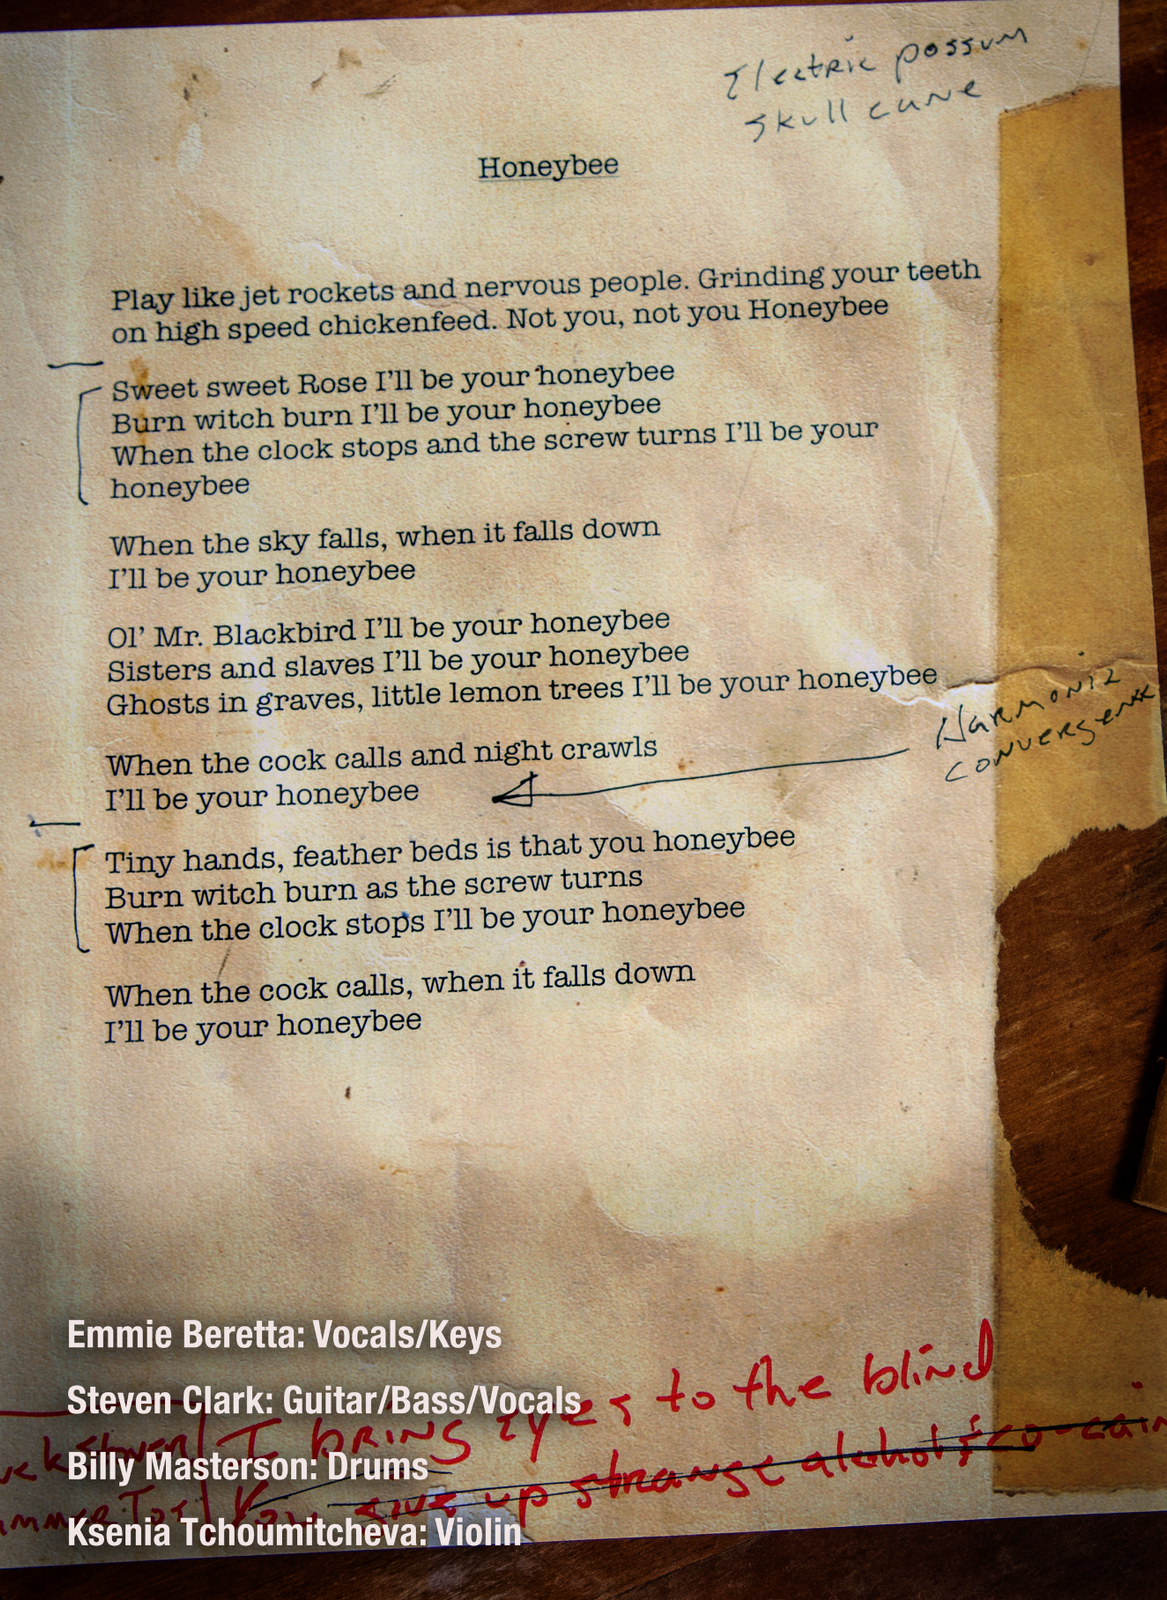 Electric possum
skull cane
Honeybee
Play like jet rockets and nervous people. Grinding your teeth
on high speed chickenfeed. Not you, not you Honeybee
Sweet sweet Rose I'll be your honeybee
Burn witch burn I'll be your honeybee
When the clock stops and the screw turns I'll be your
honeybee
When the sky falls, when it falls down
I'll be your honeybee
Ol' Mr. Blackbird I'll be your honeybee
Sisters and slaves I'll be your honeybee
Ghosts in graves, little lemon trees I'll be your honeybee
Harmonic
convergence
When the cock calls and night crawls
I'll be your honeybee
Tiny hands, feather beds is that you honeybee
Burn witch burn as the screw turns
When the clock stops I'll be your honeybee
When the cock calls, when it falls down
I'll be your honeybee
Emmie Beretta: Vocals/Keys
Steven Clark: Guitar/Bass/Vocals
I bring eyes to the blind
Billy Masterson: Drums
You give up strange alchohol &
Ksenia Tchoumitcheva: Violin